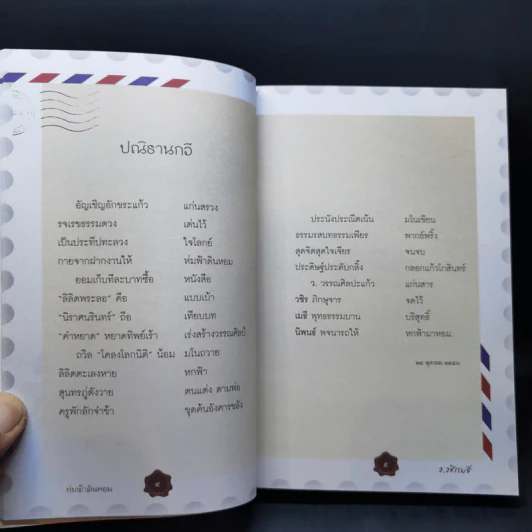 ปณิธานกวี
อัญเชิญอักขระแก้ว แก่นสรวง
รจเรขธรรมดวง เด่นไว้
เป็นประทีปทะลวง ใจโลกย์
กายจากฝากงานให้ ห่มฟ้าดินหอม
ยอมเก็บทีละบาทซื้อ หนังสือ
"ลิลิตพระลอ" คือ แบบเบ้า
"นิราศนรินทร์" ถือ เทียบบท
"คำหยาด" หยาดทิพย์เร้า เร่งสร้างวรรณศิลป์
ถวิล "โคลงโลกนิติ" น้อม มโนถวาย
ลิลิตตะเลงพ่าย หกฟ้า
สุนทรภู่ดังวาย ตนแต่ง ตามพ่อ
ครูพักลักจำข้า ขุดค้นอังคารขลัง
ห่มฟ้าดินหอม
๔
ประนังประณีตเน้น มโนเขียน
ธรรมรสบทธรรมเพียร พากย์พริ้ง
สุดจิตสุดใจเจียร จนจบ
ประดิษฐ์ประดับกลิ้ง กลอกแก้วโกสินทร์
ว. วรรณศิลปะแก้ว แก่นสาร
วชิร ภิกษุจาร จดไว้
เมธี พุทธธรรมบาน บริสุทธิ์
นิพนธ์ พจนารถให้ หกฟ้ามาหยม.
๒๕ ตุลาคม ๒๕๔๖
๕
ว.วชิรเมธี